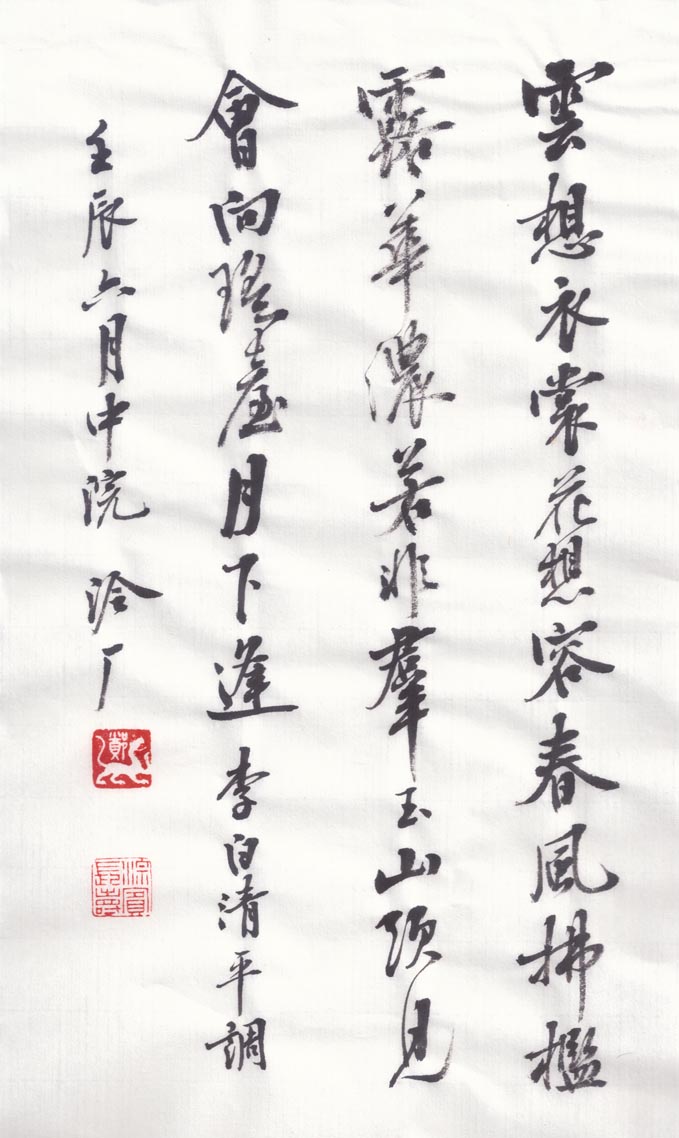 雲想衣裳花想容春風拂檻
露華濃若非羣玉山頭見
會向瑤臺月下逢 李白清平調
壬辰六月中院 冷厂